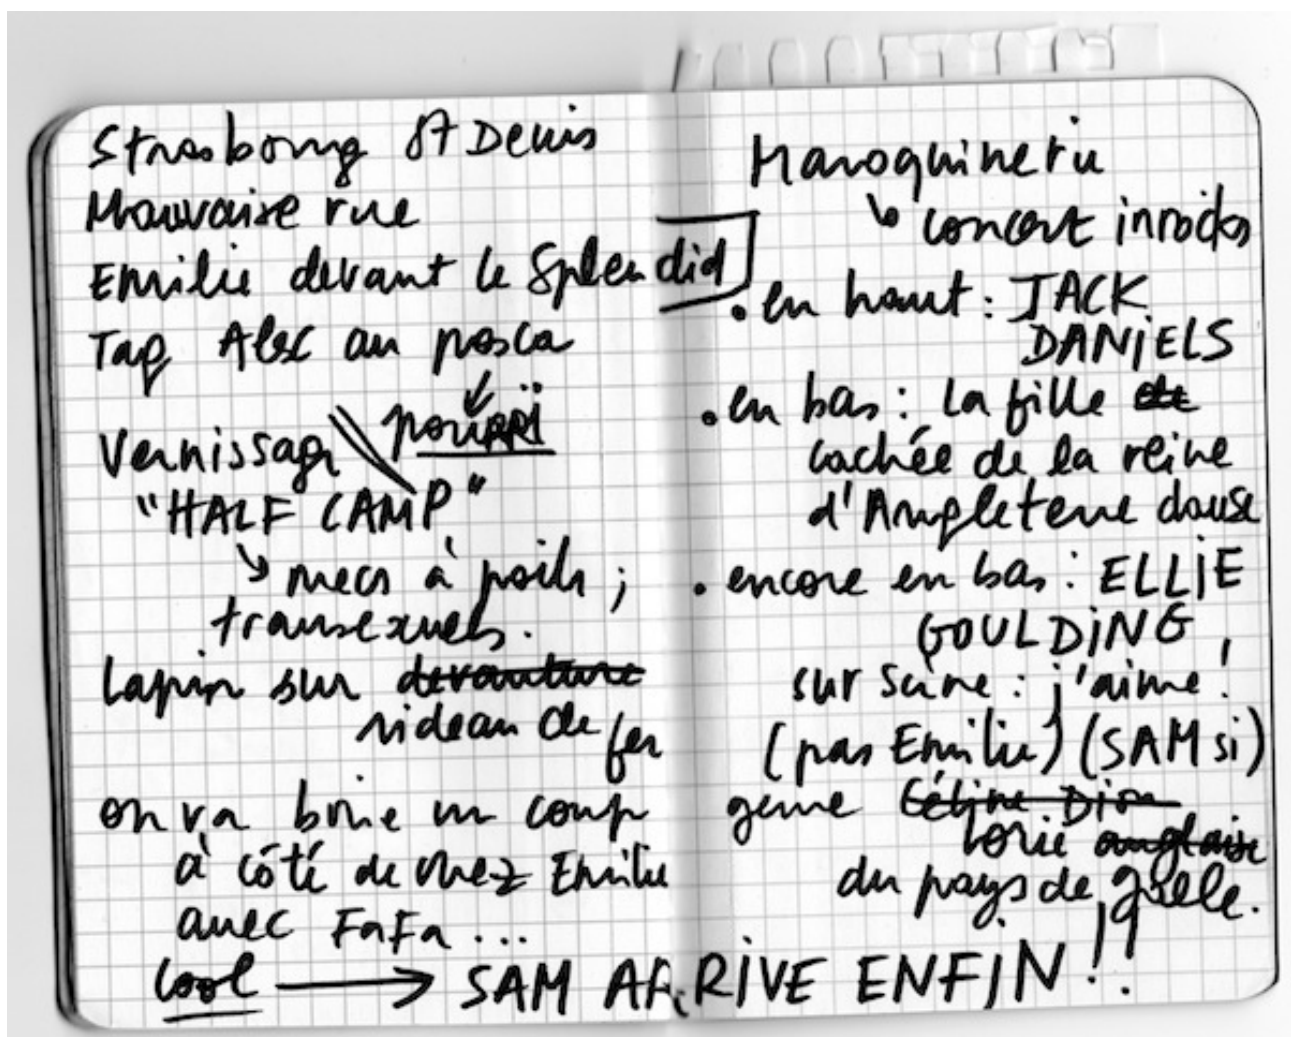 Strasbourg St Denis
Mauvaise rue
Emilie devant le Splendid
Tag Alec au posca
pourri
Vernissage
"HALF CAMP"
↳ mecs à poils ;
transexuels.
Lapin sur devanture
rideau de fer
on va boire un coup
à côté de chez Emilie
avec FaFa ...
cool → SAM ARRIVE ENFIN !!
Maroquinerie
↳ concert inrocks
• en haut : JACK
DANIELS
• en bas : la fille de
cachée de la reine
d'Angleterre danse
• encore en bas : ELLIE
GOULDING,
sur scène : j'aime !
(pas Emilie) (SAM si)
genre Céline Dion
Lorie anglaise
du pays de galle.